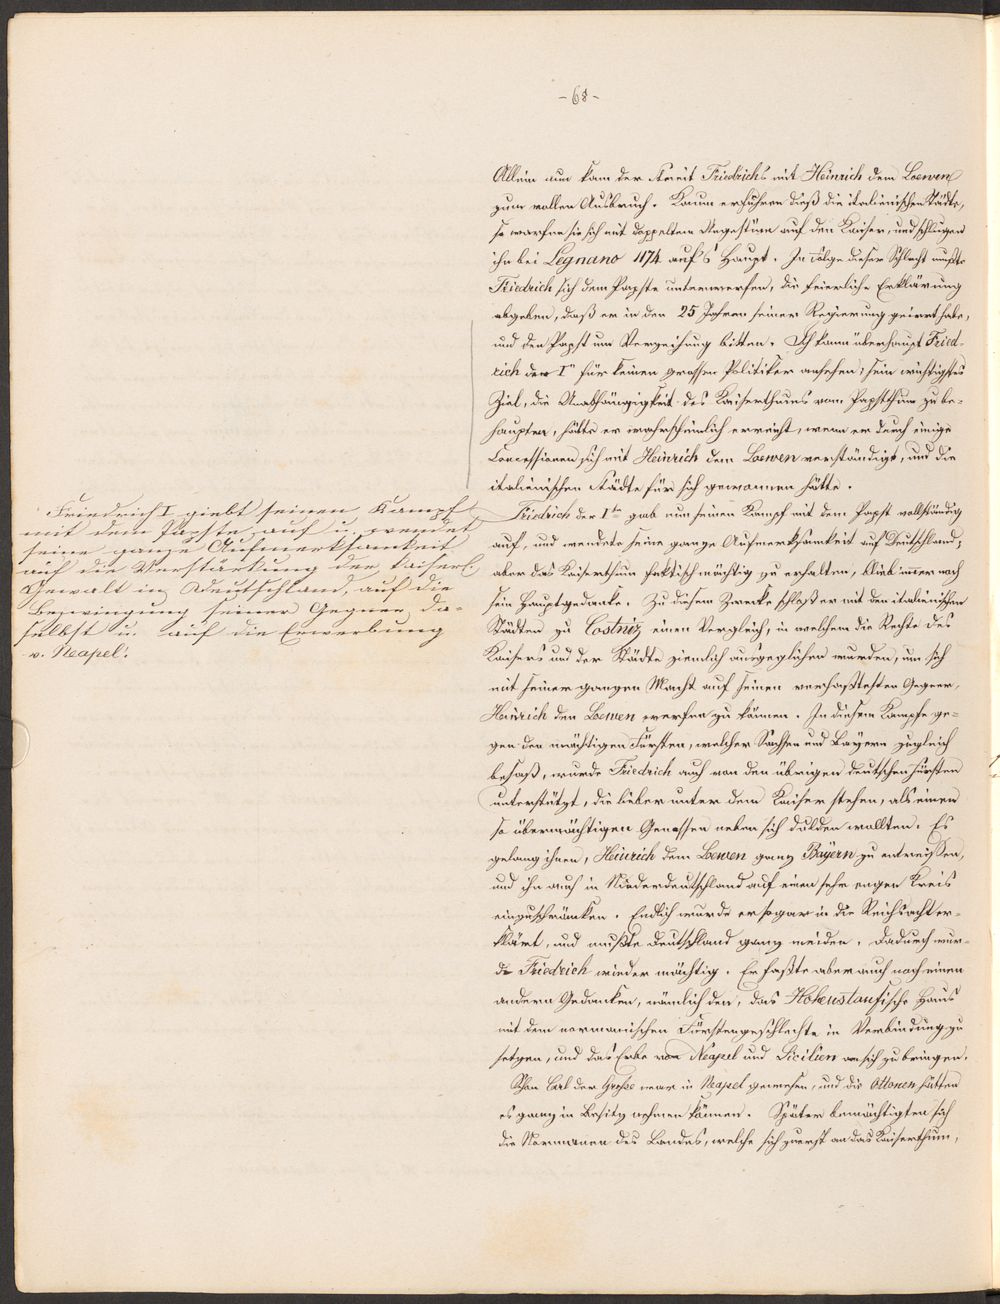 - 68 -
Allein nun kam der Streit Friedrichs mit Heinrich dem Loewen
zum vollen Ausbruch. Kaum erfuhren dieß die italienischen Städte,
so warfen sie sich mit doppeltem Ungestüm auf den Kaiser, und schlugen
ihn bei Legnano 1174 auf's Haupt. In Folge dieser Schlacht mußte
Friedrich sich dem Papste unterwerfen, die feierliche Erklärung
abgeben, daß er in den 25 Jahren seiner Regierung geirrt habe,
und den Papst um Verzeihung bitten. Ich kann überhaupt Fried-
rich den I.n für keinen grossen Politiker ansehen; sein wichtigstes
Ziel, die Unabhängigkeit des Kaiserthums vom Papstthum zu be-
haupten, hätte er wahrscheinlich erreicht, wenn er durch einige
Concessionen sich mit Heinrich dem Loewen verständigt, und die
italienischen Städte für sich gewonnen hätte.
Friedrich I. giebt seinen Kampf
mit dem Papste auf u. wendet
seine ganze Aufmerksamkeit
auf die Verstärkung der kaiserl.
Gewalt in Deutschland, auf die
Bezwingung seiner Gegner da-
selbst u. auf die Erwerbung
v. Neapel.
Friedrich der I.te gab nun seinen Kampf mit dem Papst vollständig
auf, und wendete seine ganze Aufmerksamkeit auf Deutschland;
aber das Kaiserthum faktisch mächtig zu erhalten, blieb immer noch
sein Hauptgedanke. Zu diesem Zwecke schloß er mit den italienischen
Städten zu Costniz einen Vergleich, in welchem die Rechte des
Kaisers und der Städte ziemlich ausgeglichen wurden, um sich
mit seiner ganzen Macht auf seinen verhaßtesten Gegner,
Heinrich den Loewen werfen zu können. In diesem Kampfe ge-
gen den mächtigen Fürsten, welcher Sachsen und Bayern zugleich
besaß, wurde Friedrich auch von den übrigen deutschen Fürsten
unterstützt, die lieber unter dem Kaiser stehen, als einen
so übermächtigen Genossen neben sich dulden wollten. Es
gelang ihnen, Heinrich dem Loewen ganz Bayern zu entreissen,
und ihn auch in Niederdeutschland auf einen sehr engen Kreis
einzuschränken. Endlich wurde er sogar in die Reichsacht er-
klärt, und mußte Deutschland ganz meiden. Dadurch wur-
de Friedrich wieder mächtig. Er faßte aber auch noch einen
andern Gedanken, nämlich den, das Hohenstaufische Haus
mit dem normanischen Fürstengeschlechte in Verbindung zu
setzen, und das Erbe von Neapel und Sicilien an sich zu bringen.
Schon Carl der Große war in Neapel gewesen, und die Ottonen hätten
es ganz in Besitz nehmen können. Später bemächtigten sich
die Normanen des Landes, welche sich zuerst an das Kaiserthum,